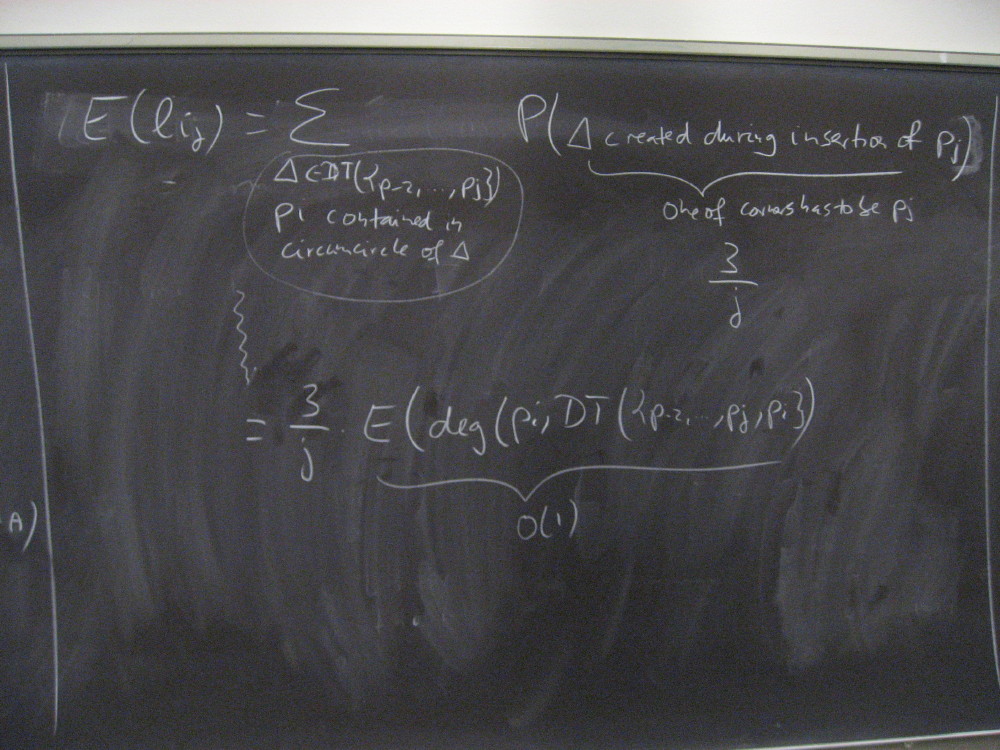 E(l_{ij}) = Σ P(Δ created during insertion of p_j)
Δ ∈ DT({p_{-2}, ..., p_j})
p_i contained in
circumcircle of Δ
one of corners has to be p_j
3/j
= 3/j · E(deg(p_i, DT({p_{-2}, ..., p_j, p_i})
O(1)
A)